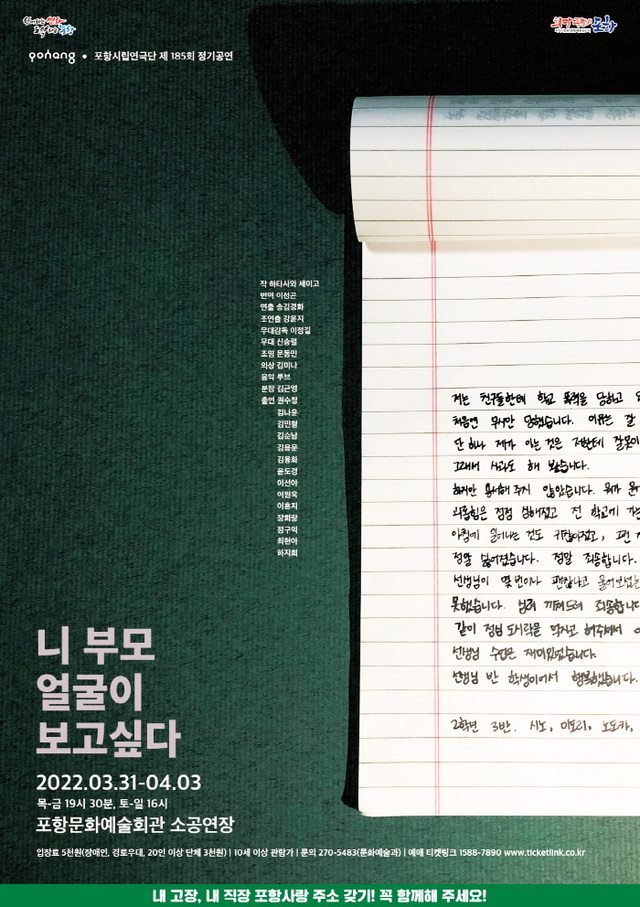 pohang • 포항시립연극단 제 185회 정기공연
작 하타사와 세이고
번역 이성곤
연출 송김경화
조연출 강윤지
무대감독 이정길
무대 신승렬
조명 문동민
의상 김미나
음악 루브
분장 김근영
출연 권수정
김나윤
김민철
김순남
김용운
김용화
윤도경
이선아
이원욱
이혼지
장희랑
정구익
최현아
하지희
저는 친구들한테 학교 폭력을 당하고
처음엔 무시만 당했습니다. 이유는 잘
단 하나 제가 아는 것은 저한테 잘못이
그래서 사과도 해 봤습니다.
하지만 용서해 주지 않았습니다. 뭐가
괴롭힘은 점점 심해졌고 전 학교에 가는
아침에 일어나는 것도 귀찮아졌고,
정말 싫어졌습니다. 정말 죄송합니다.
선생님이 몇 번이나 괜찮냐고 물어보셨는
못했습니다. 심려 끼쳐드려 죄송합니다
같이 점심 도시락을 먹자고 해주셔서
선생님 수업은 재미있었습니다.
선생님 반 학생이어서 행복했습니다.
2학년 3반. 시노, 미도리, 노도카,
니 부모
얼굴이
보고싶다
2022.03.31-04.03
목-금 19시 30분, 토-일 16시
포항문화예술회관 소공연장
입장료 5천원(장애인, 경로우대, 20인 이상 단체 3천원) | 10세 이상 관람가 | 문의 270-5483(문화예술과) | 예매 티켓링크 1588-7890 www.ticketlink.co.kr
내 고장, 내 직장 포항사랑 주소 갖기! 꼭 함께해 주세요!